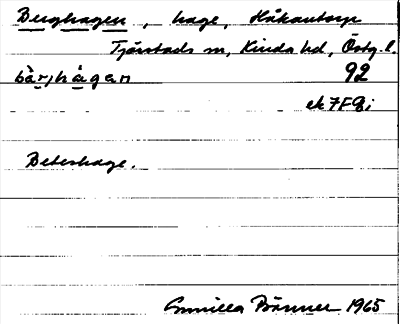 Berghagen, hage, Håkantorp
Tjärstads sn, Kinda hd, Östg. l.
bàrjhágan 92
ek 7F8i
Beteshage.
Gunilla Bänner 1965